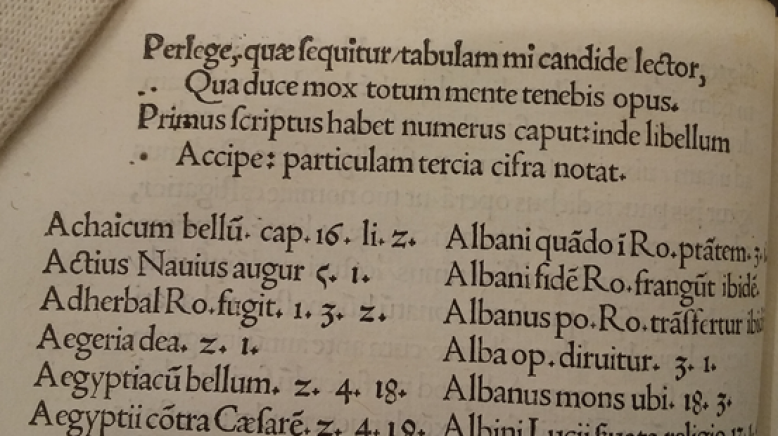 Perlege, quæ ſequitur/tabulam mi candide lector,
Qua duce mox totum mente tenebis opus.
Primus ſcriptus habet numerus caput: inde libellum
Accipe: particulam tercia cifra notat.
Achaicum bellū. cap. 16. li. 2.
Actius Nauius augur 5. 1.
Adherbal Ro. fugit. 1. 3. 2.
Aegeria dea. 2. 1.
Aegyptiacū bellum. 2. 4. 18.
Aegyptii cōtra Cæſarē. 2. 4. 19.
Albani quādo ī Ro. ptātem. 3.
Albani fidē Ro. frangūt ibidē.
Albanus po. Ro. trāſfertur
Alba op. diruitur. 3. 1.
Albanus mons ubi. 18. 3.
Albini